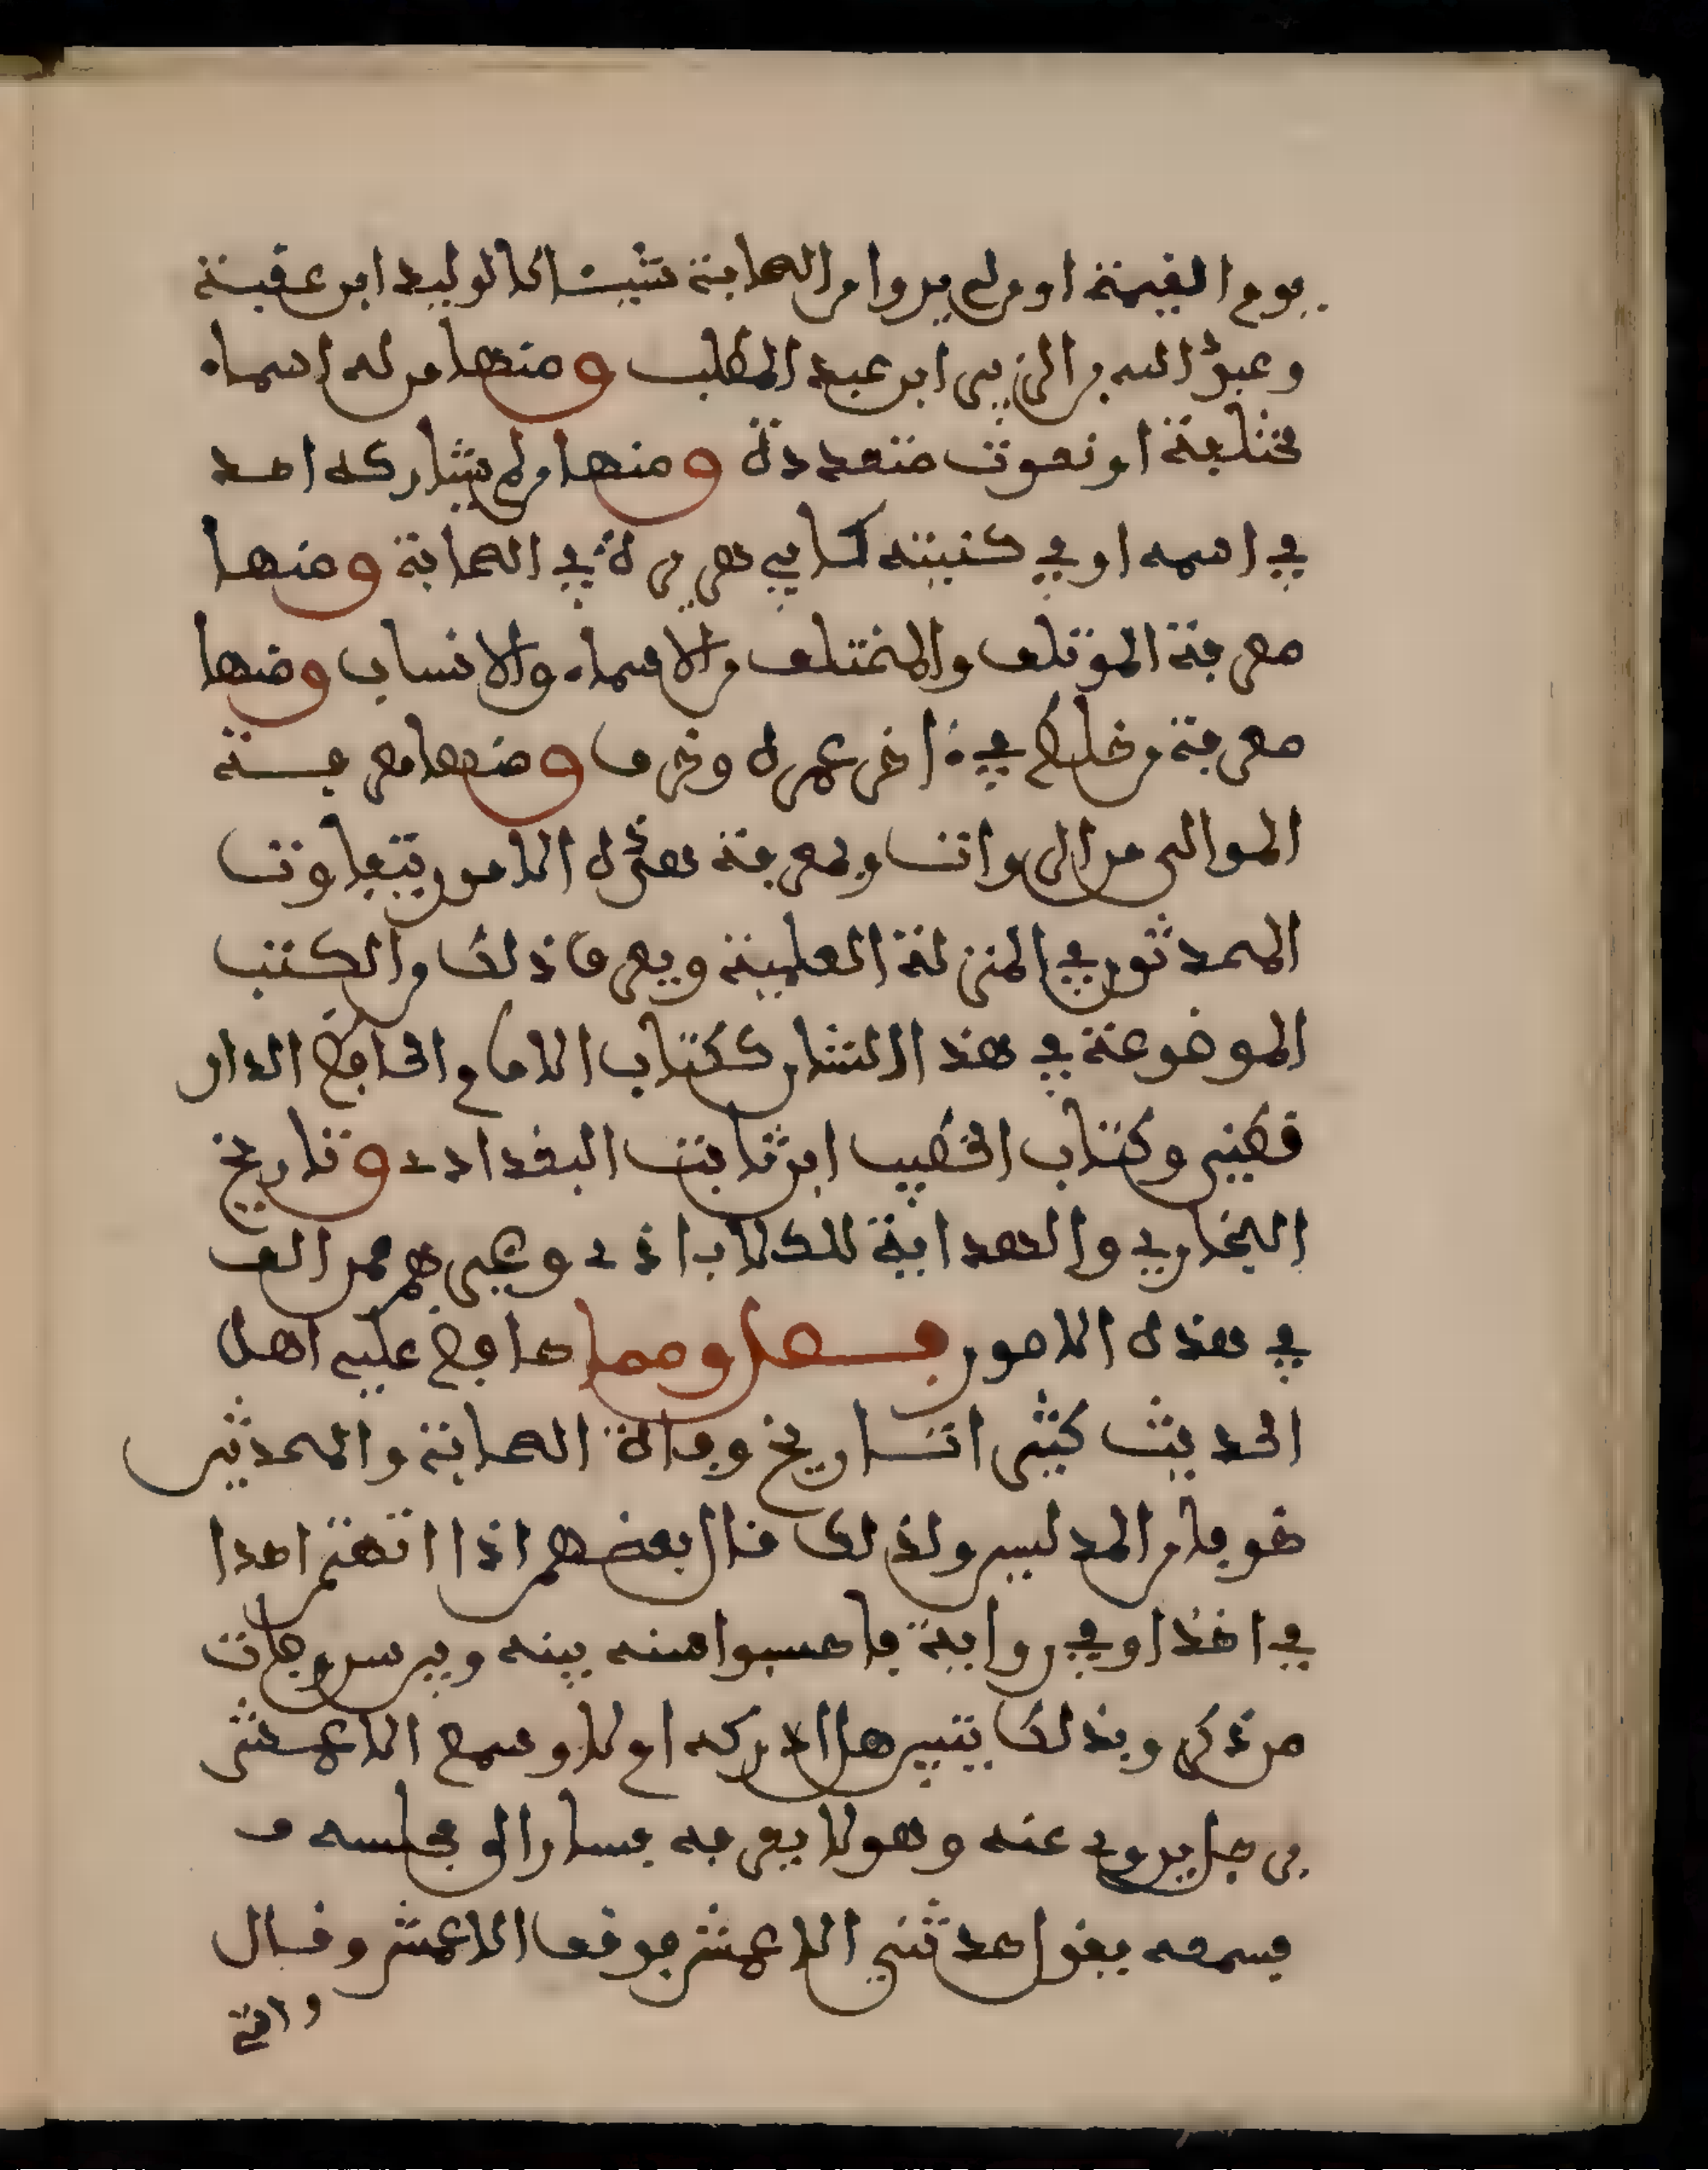 يوم القيمة او من لم يروا من الصحابة شيئا كالوليد ابن عقبة
وعبد الله بن الزبير ابن عبد المطلب ومنها من له اسماء
مختلفة او نعوت متعددة ومنها من لم يشاركه احد
في اسمه او في كنيته كابي هريرة في الصحابة ومنها
معرفة الموتلف والمختلف من الاسماء والانساب ومنها
معرفة من خلط في ءاخر عمره وخرف ومنها معرفة
الموالى من الرواة وبمعرفة هذه الامور يتفاوت
المحدثون في المنزلة العلمية ويعرف ذلك من الكتب
الموضوعة في هذا الشان ككتاب الامام الحافظ الدار
قطني وكتاب الخطيب ابن ثابت البغدادي وتاريخ
البخاري والهداية للكلاباذي وغيرهم ممن الف
في هذه الامور فصل ومما حافظ عليه اهل
الحديث كثيرا تاريخ وفاة الصحابة والمحدثين
خوفا من المدلسين ولذلك قال بعضهم اذا اتهمتم احدا
في اخذ او في رواية فاحسبوا سنه بينه وبين سن وفات
من ذكر وبذلك يتبين هل ادركه ام لا وسمع الاعمش
برجل يروي عنه وهو لا يعرفه فسار الى مجلسه ف
فسمعه يقول حدثني الاعمش فوقف الاعمش وقال